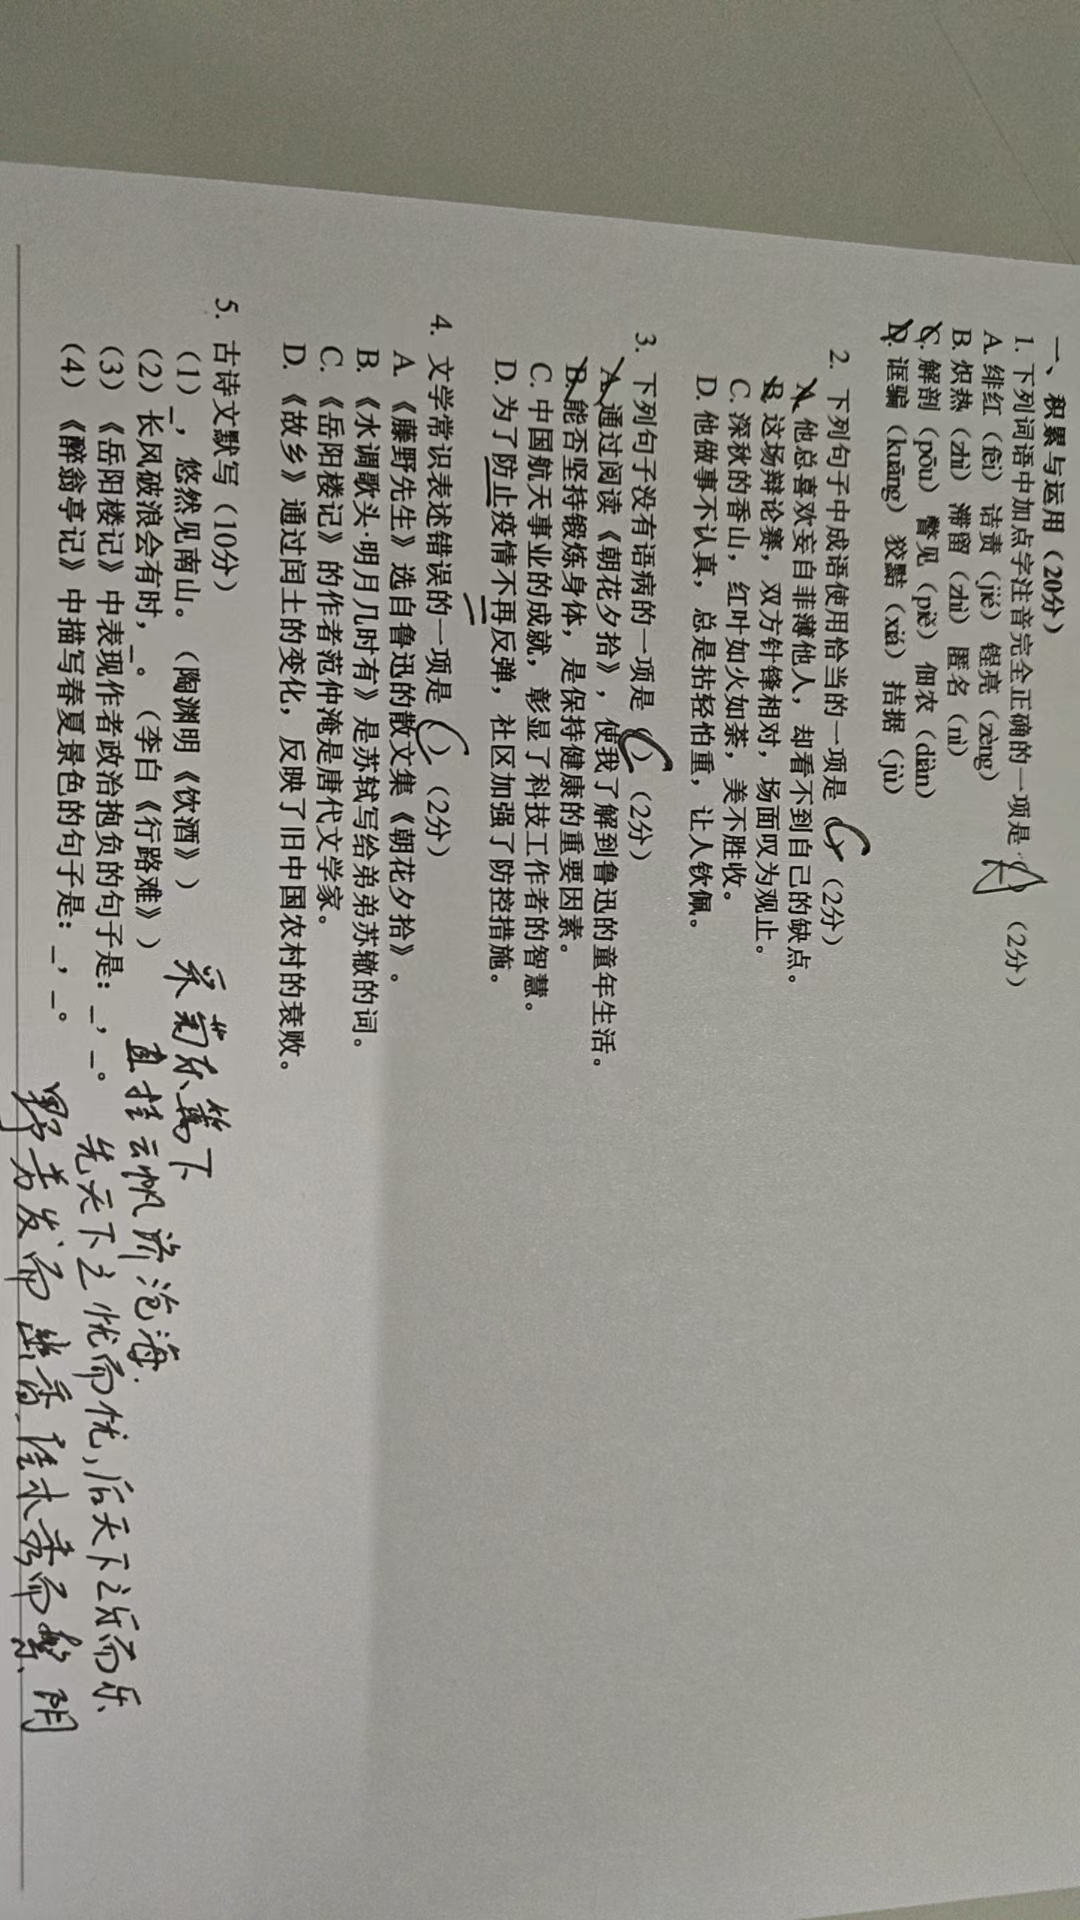 一、积累与运用（20分）
1. 下列词语中加点字注音完全正确的一项是（A）（2分）
A. 绯红（fēi） 诘责（jié） 锃亮（zèng）
B. 炽热（zhì） 滞留（zhì） 匿名（nì）
C. 解剖（pōu） 瞥见（piě） 佃农（diàn）
D. 诓骗（kuāng） 狡黠（xiá） 拮据（jù）
2. 下列句子中成语使用恰当的一项是（C）（2分）
A. 他总喜欢妄自菲薄他人，却看不到自己的缺点。
B. 这场辩论赛，双方针锋相对，场面叹为观止。
C. 深秋的香山，红叶如火如荼，美不胜收。
D. 他做事不认真，总是拈轻怕重，让人钦佩。
3. 下列句子没有语病的一项是（C）（2分）
A. 通过阅读《朝花夕拾》，使我了解到鲁迅的童年生活。
B. 能否坚持锻炼身体，是保持健康的重要因素。
C. 中国航天事业的成就，彰显了科技工作者的智慧。
D. 为了防止疫情不再反弹，社区加强了防控措施。
4. 文学常识表述错误的一项是（C）（2分）
A. 《藤野先生》选自鲁迅的散文集《朝花夕拾》。
B. 《水调歌头·明月几时有》是苏轼写给弟弟苏辙的词。
C. 《岳阳楼记》的作者范仲淹是唐代文学家。
D. 《故乡》通过闰土的变化，反映了旧中国农村的衰败。
5. 古诗文默写（10分）
（1）_，悠然见南山。（陶渊明《饮酒》） 采菊东篱下
（2）长风破浪会有时，_。（李白《行路难》） 直挂云帆济沧海.
（3）《岳阳楼记》中表现作者政治抱负的句子是：_，_。 先天下之忧而忧,后天下之乐而乐
（4）《醉翁亭记》中描写春夏景色的句子是：_，_。 野芳发而幽香 佳木秀而繁阴